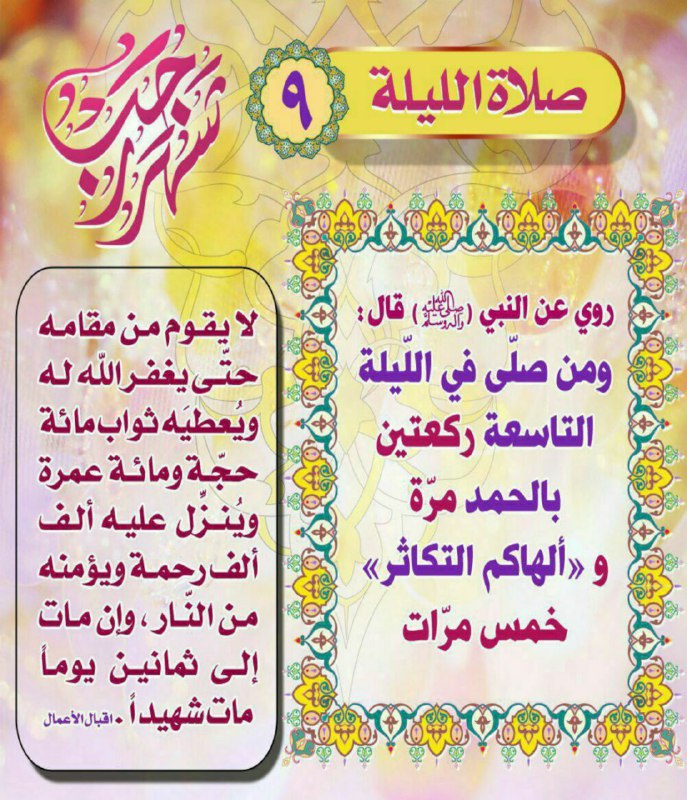 صلاة الليلة
٩
شهر رجب
روي عن النبي (ﷺ) قال:
ومن صلّى في اللّيلة
التاسعة ركعتين
بالحمد مرّة
و «ألهاكم التكاثر»
خمس مرّات
لا يقوم من مقامه
حتّى يغفر الله له
ويُعطيَه ثواب مائة
حجّة ومائة عمرة
ويُنزِّل عليه ألف
ألف رحمة ويؤمنه
من النّار، وإن مات
إلى ثمانين يوماً
مات شهيداً. اقبال الأعمال